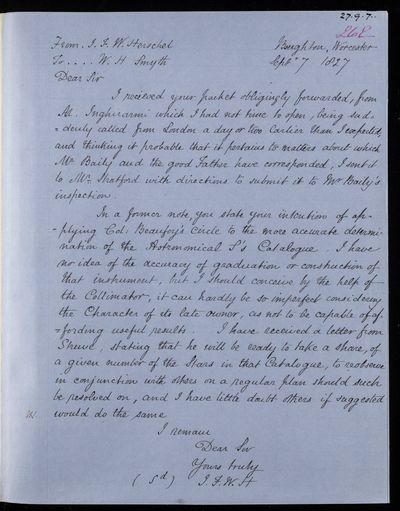 27.9.7..
From. J. F. W. Herschel
Boughton, Worcester
To .... W. H Smyth
Sept 7 1827
Dear Sir
I recieved your packet obligingly forwarded, from
M. Inghirami which I had not time to open, being sud-
=denly called from London a day or two earlier than I expected,
and thinking it probable that it pertains to matters about which
Mr Baily and the good Father have corresponded, I sent it
to Mr Stratford with directions to submit it to Mr Baily's
inspection.
In a former note, you state your intention of ap-
-plying Col. Beaufoy's circle to the more accurate determi-
nation of the Astronomical S's Catalogue. I have
no idea of the accuracy of graduation or construction of
that instrument, but I should conceive by the help of
the Collimator, it can hardly be so imperfect considering
the Character of its late owner, as not to be capable of af-
=fording useful results. I have received a letter from
Struve, stating that he will be ready to take a share, of
a given number of the Stars in that Catalogue, to reobserve
in conjunction with others on a regular plan should such
be resolved on, and I have little doubt others if suggested
would do the same
I remain
Dear Sir
Yours truly
(Sd) J. F. W. H